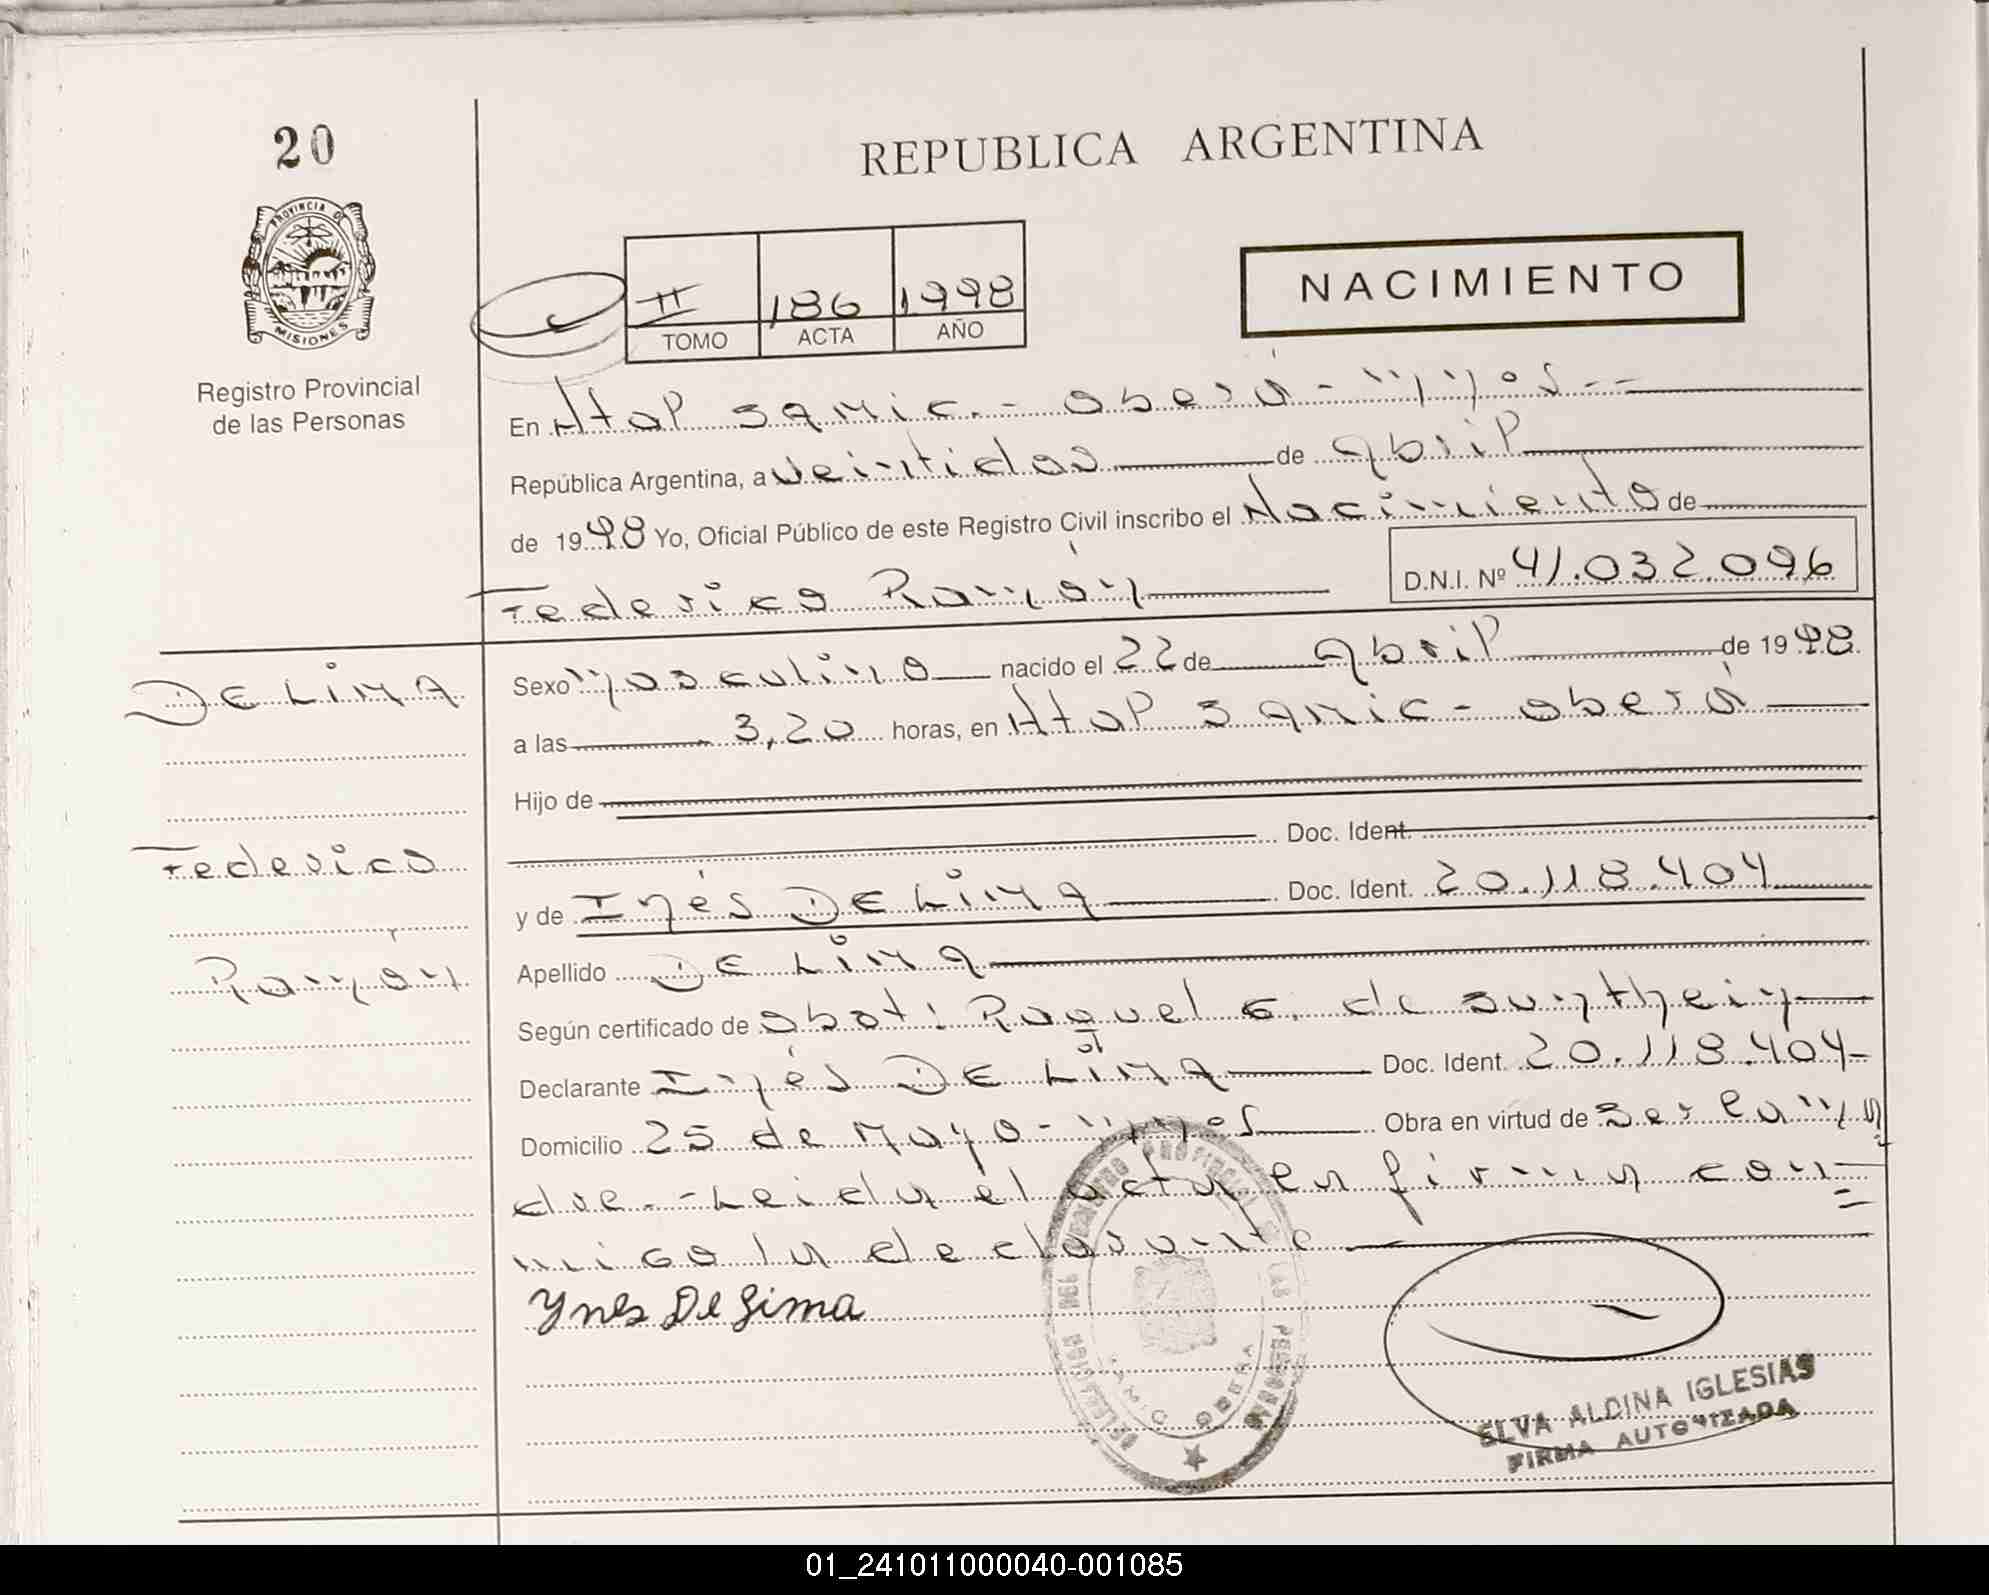 20
REPUBLICA ARGENTINA
PROVINCIA DE
MISIONES
NACIMIENTO
II 186 1998
TOMO ACTA AÑO
Registro Provincial
de las Personas
En Htal Samic.- Oberá - Mnes --
República Argentina, a veintidos de abril
de 1998 Yo, Oficial Público de este Registro Civil inscribo el Nacimiento de
Federico Ramón D.N.I. Nº 41.032.096
DE LIMA
Sexo Masculino nacido el 22 de abril de 1998
a las 3,20 horas, en Htal Samic - Oberá
Hijo de
Doc. Ident.
Federico
y de Inés DE LIMA Doc. Ident. 20.118.404
Ramón
Apellido DE LIMA
Según certificado de obst: Raquel G. de Sunthein
Declarante Inés DE LIMA Doc. Ident. 20.118.404-
Domicilio 25 de Mayo - Mnes Obra en virtud de ser la ma
dre.- Leida el acta en firma con=
migo la declarante
Ynes De Lima
ELVA ALDINA IGLESIAS
FIRMA AUTORIZADA
01_241011000040-001085